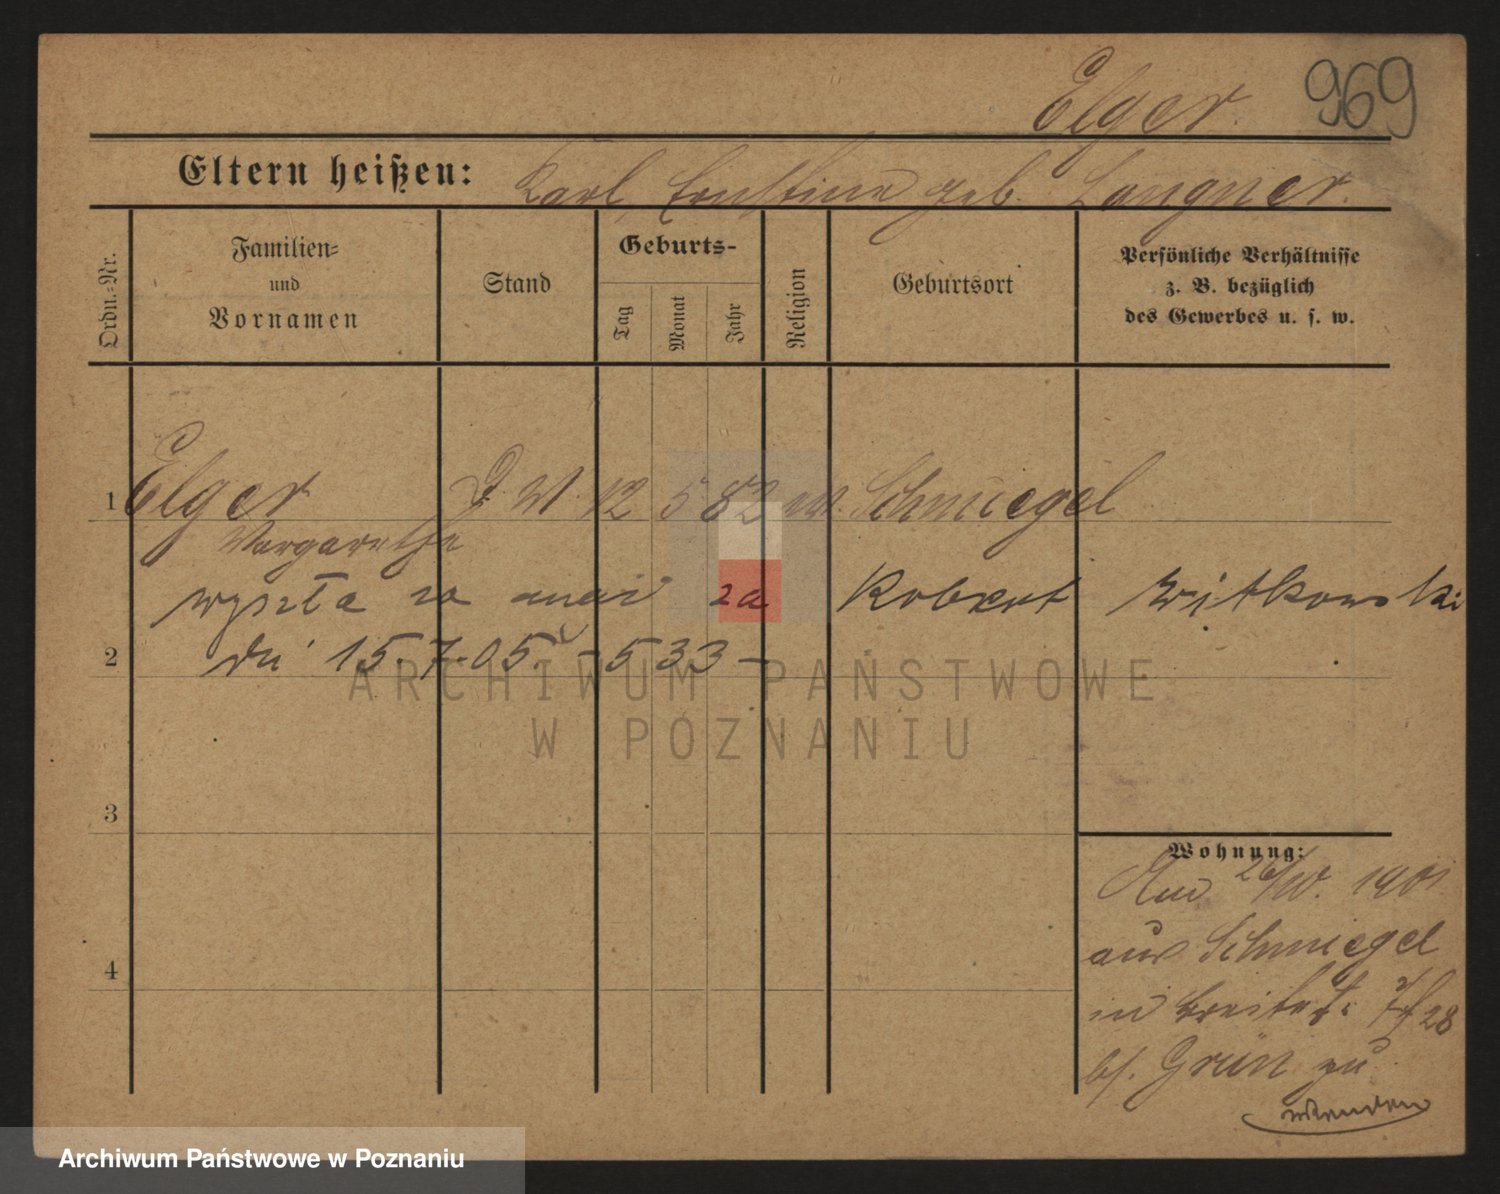 Elger. 969
Eltern heißen: Karl, Ernstine geb. Langner.
Ordn.-Nr.
Familien-
und
Vornamen
Stand
Geburts-
Tag
Monat
Jahr
Religion
Geburtsort
Persönliche Verhältnisse
z. B. bezüglich
des Gewerbes u. s. w.
1 Elger D. M. 12 5 82 Schmiegel
Margarethe
wyszła za mąż za Robert Witkowski
2 15.7.05 - 533 -
ARCHIWUM PAŃSTWOWE
W POZNANIU
3
Wohnung:
1901
aus Schmiegel
4
in Breitestr. 28
b/. Grün zu
wenden
Archiwum Państwowe w Poznaniu